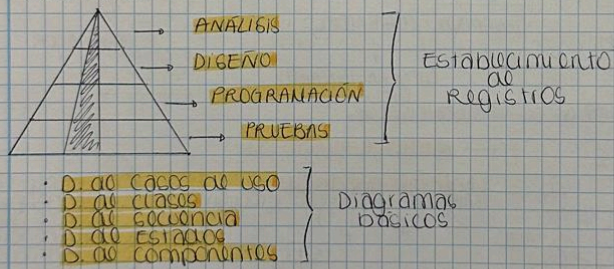 ANÁLISIS
DISEÑO
PROGRAMACIÓN
PRUEBAS
Establecimiento
de
Registros
· D. de casos de uso
· D. de clases
· D. de secuencia
· D. de Estados
· D. de componentes
Diagramas
básicos